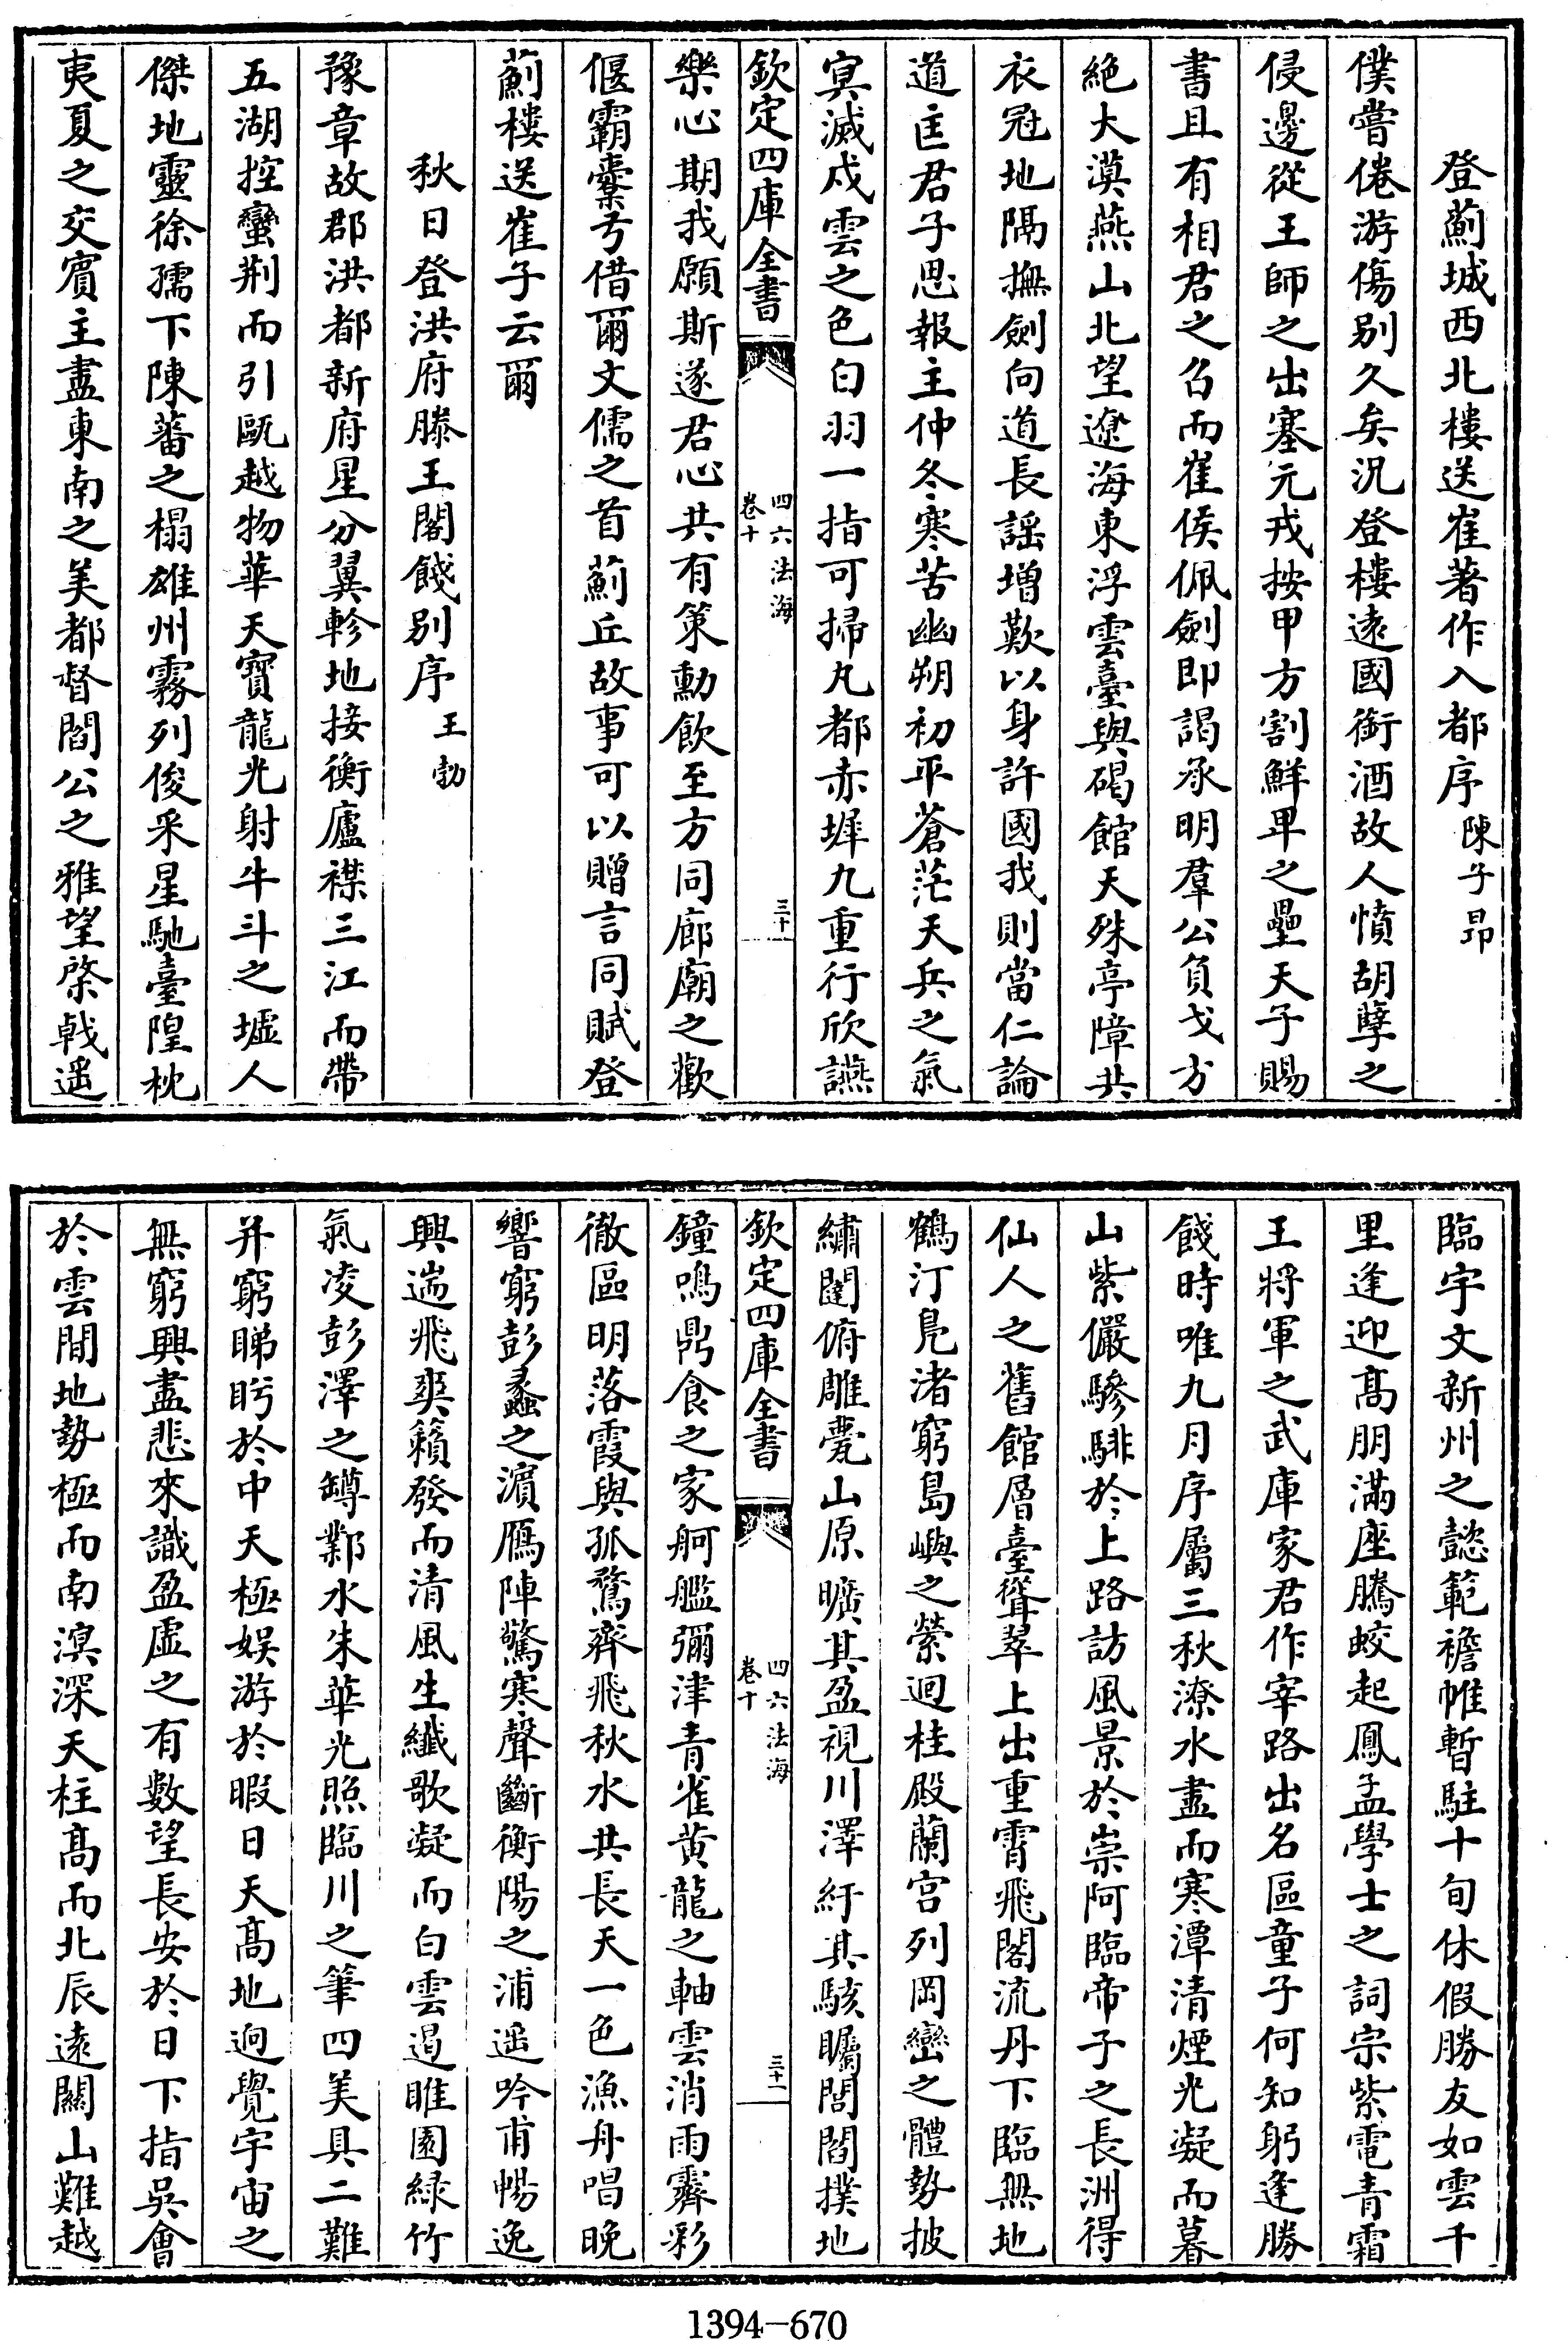 登薊城西北樓送崔著作入都序陳子昂
僕嘗倦游傷别久矣況登樓遠國銜酒故人憤胡孽之
侵邊從王師之出塞元戎按甲方割鮮卑之壘天子賜
書且有相君之召而崔侯佩劍即謁承明羣公負戈方
絶大漠燕山北望遼海東浮雲臺與碣館天殊亭障共
衣冠地隔撫劍向道長謡增歎以身許國我則當仁論
道匡君子思報主仲冬寒苦幽朔初平蒼茫天兵之氣
㝠滅戍雲之色白羽一指可掃丸都赤墀九重行欣讌
欽定四庫全書
四六法海
卷十
三十
樂心期我願斯遂君心共有策勳飲至方同廊廟之歡
偃霸櫜弓借爾文儒之首薊丘故事可以贈言同賦登
薊樓送崔子云爾
秋日登洪府滕王閣餞别序王勃
豫章故郡洪都新府星分翼軫地接衡廬襟三江而帶
五湖控蠻荆而引甌越物華天寳龍光射牛斗之墟人
傑地靈徐孺下陳蕃之榻雄州霧列俊采星馳臺隍枕
夷夏之交賓主盡東南之美都督閻公之雅望棨㦸遥
臨宇文新州之懿範襜帷暫駐十旬休假勝友如雲千
里逢迎髙朋滿座騰蛟起鳳孟學士之詞宗紫電青霜
王將軍之武庫家君作宰路出名區童子何知躬逢勝
餞時唯九月序屬三秋潦水盡而寒潭清煙光凝而暮
山紫儼驂騑於上路訪風景於崇阿臨帝子之長洲得
仙人之舊館層臺聳翠上出重霄飛閣流丹下臨無地
鶴汀鳬渚窮島嶼之縈迴桂殿蘭宫列岡巒之體勢披
繡闥俯雕甍山原曠其盈視川澤紆其駭矚閭閻撲地
欽定四庫全書
四六法海
卷十
三十一
鐘鳴鼎食之家舸艦彌津青雀黄龍之軸雲消雨霽彩
徹區明落霞與孤鶩齊飛秋水共長天一色漁舟唱晚
響窮彭蠡之濵鴈陣驚寒聲斷衡陽之浦遥吟甫暢逸
興遄飛爽籟發而清風生纖歌凝而白雲遏睢園緑竹
氣凌彭澤之罇鄴水朱華光照臨川之筆四美具二難
并窮睇眄於中天極娱游於暇日天髙地迥覺宇宙之
無窮興盡悲來識盈虚之有數望長安於日下指吳會
於雲間地勢極而南溟深天柱髙而北辰遠關山難越
1394-670